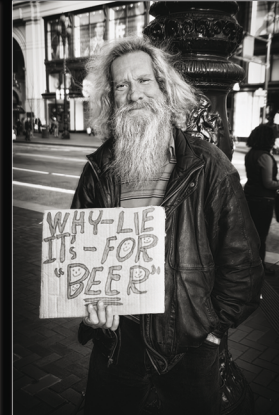 WHY-LIE
IT'S-FOR
"BEER"